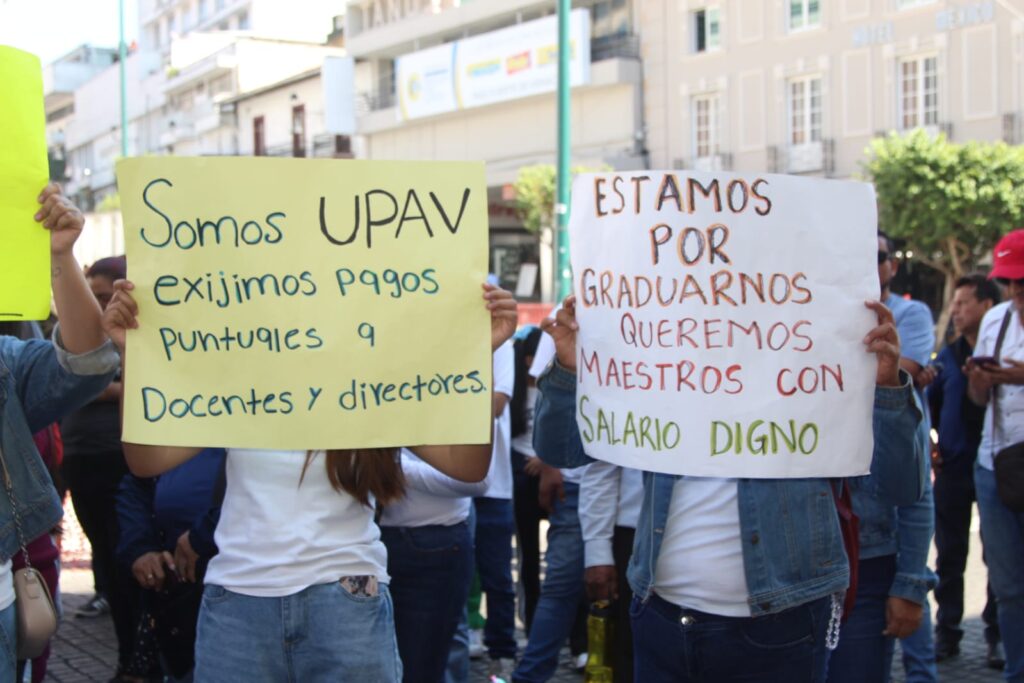 Somos UPAV
exijimos pagos
puntuales a
Docentes y directores.
ESTAMOS
POR
GRADUARNOS
QUEREMOS
MAESTROS CON
SALARIO DIGNO